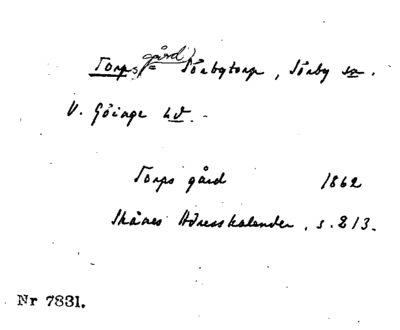 Torps gård = Sörbytorp, Sörby sn.
V. Göinge hd.
Torps gård 1862
Skånes Adresskalender, s. 213.
Nr 7831.